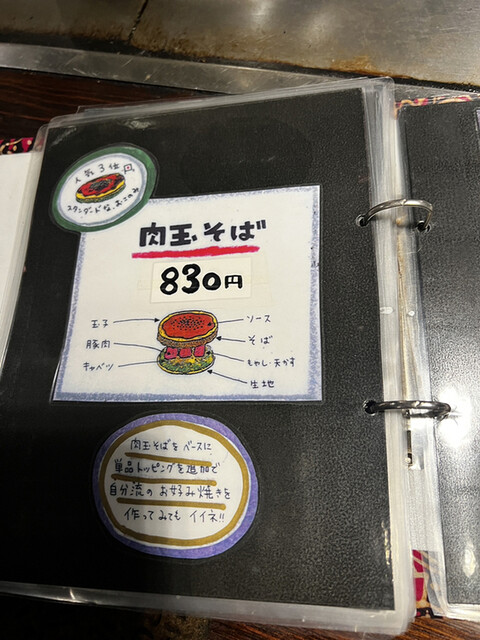 人気3位
スタンダードな、おこのみ
肉玉そば
830円
玉子
ソース
豚肉
そば
キャベツ
もやし・天かす
生地
肉玉そばをベースに
単品トッピングを追加で
自分流のお好み焼きを
作ってみてもイイネ!!